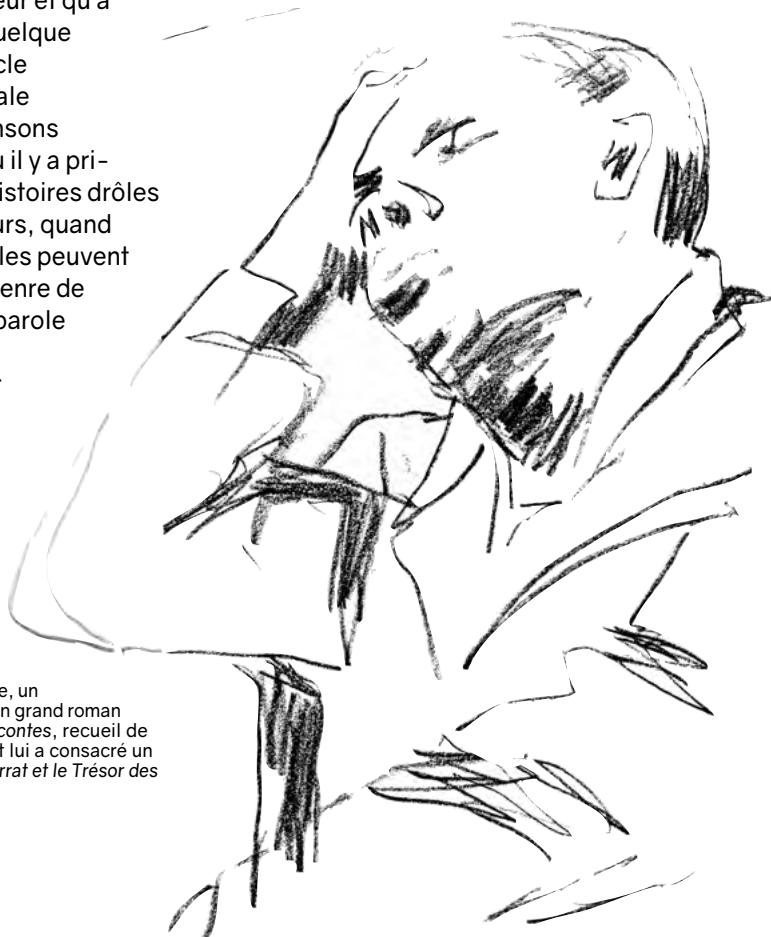 eur et qu'à
uelque
cle
ale
nsons
u il y a pri-
istoires drôles
urs, quand
les peuvent
enre de
parole
e, un
n grand roman
contes, recueil de
t lui a consacré un
rrat et le Trésor des